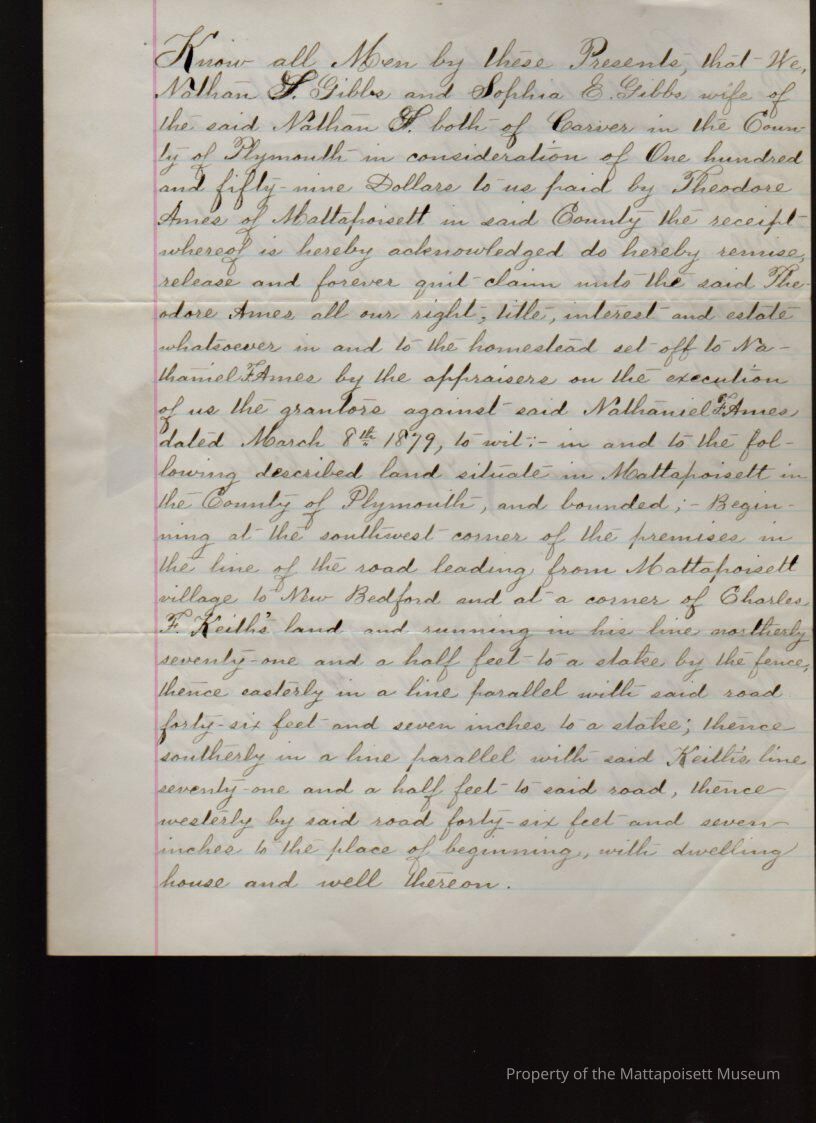 Know all Men by these Presents, that We,
Nathan S. Gibbs and Sophia E. Gibbs wife of
the said Nathan S. both of Carver in the Coun-
ty of Plymouth in consideration of One hundred
and fifty-nine Dollars to us paid by Theodore
Ames of Mattapoisett in said County the receipt
whereof is hereby acknowledged do hereby remise,
release and forever quit-claim unto the said The-
odore Ames all our right, title, interest and estate
whatsoever in and to the homestead set off to Na-
thaniel F. Ames by the appraisers on the execution
of us the grantors against said Nathaniel F. Ames
dated March 8th 1879, to wit:- in and to the fol-
lowing described land situate in Mattapoisett in
the County of Plymouth, and bounded;- Begin-
ning at the southwest corner of the premises in
the line of the road leading from Mattapoisett
village to New Bedford and at a corner of Charles
F. Keith's land and running in his line northerly
seventy-one and a half feet to a stake by the fence,
thence easterly in a line parallel with said road
forty-six feet and seven inches to a stake; thence
southerly in a line parallel with said Keith's line
seventy-one and a half feet to said road, thence
westerly by said road forty-six feet and seven
inches to the place of beginning, with dwelling
house and well thereon.
Property of the Mattapoisett Museum